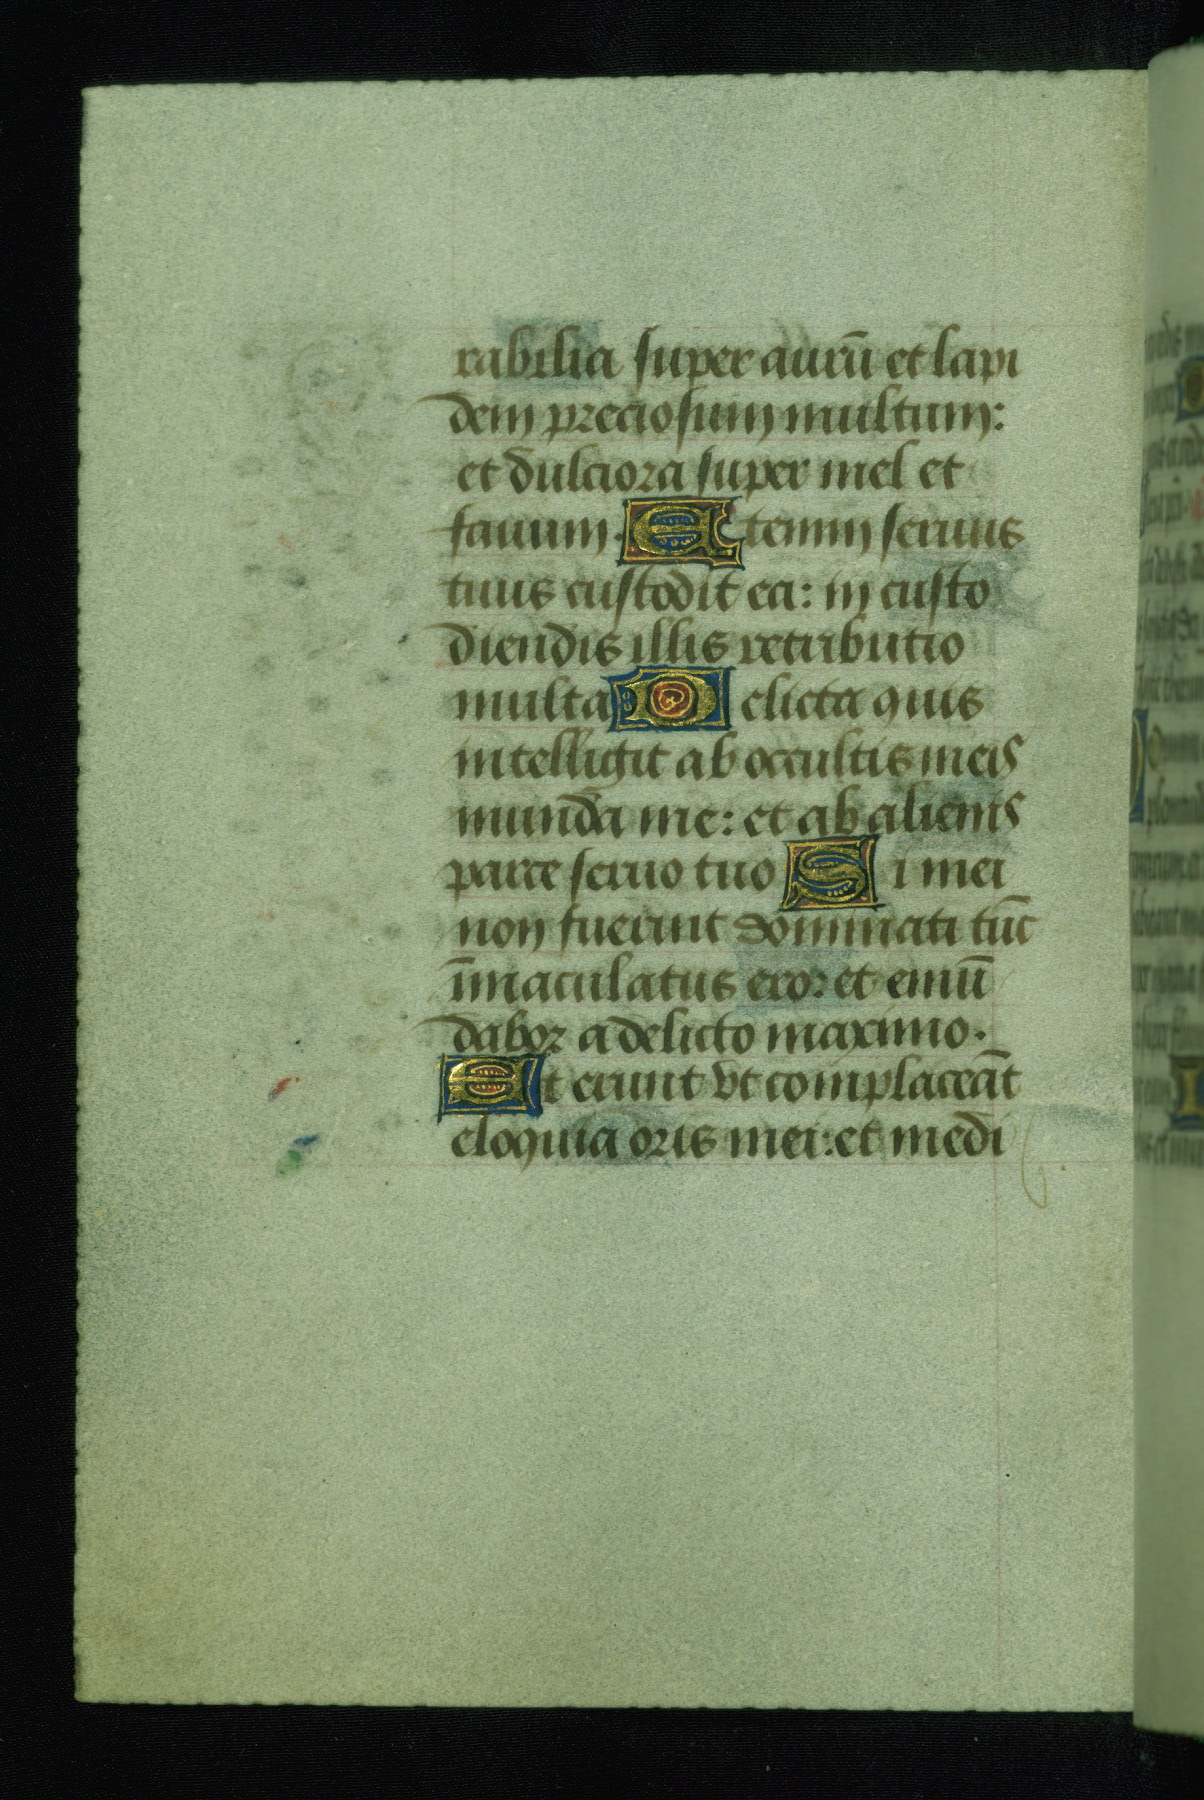 rabilia super aurū et lapi
dem preciosum multum:
et dulciora super mel et
fauum. Etenim seruus
tuus custodit ea: in custo
diendis illis retributio
multa Delicta quis
intelligit ab occultis meis
munda me: et ab alienis
parce seruo tuo Si mei
non fuerint dominati tūc
īmaculatus ero: et emū
dabor a delicto maximo.
Et erunt vt complaceāt
eloquia oris mei: et medi